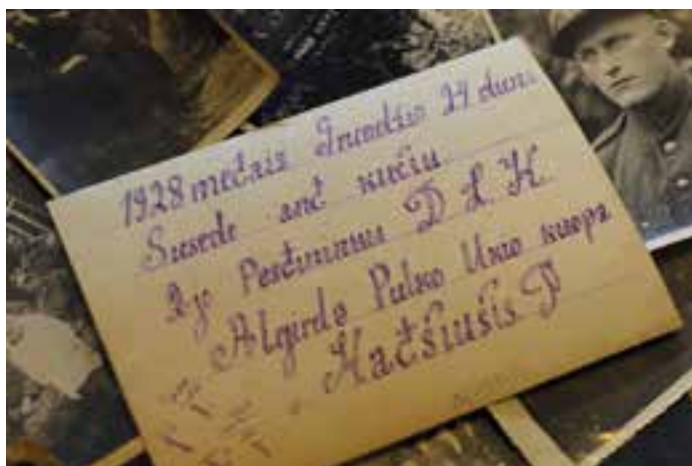 1928 metais Gruodžio 24 diena
Susėdę ant kučiu
2jo Pestininku D L K
Algirdo Pulko Ūkio kuopa
Kačšiušis P